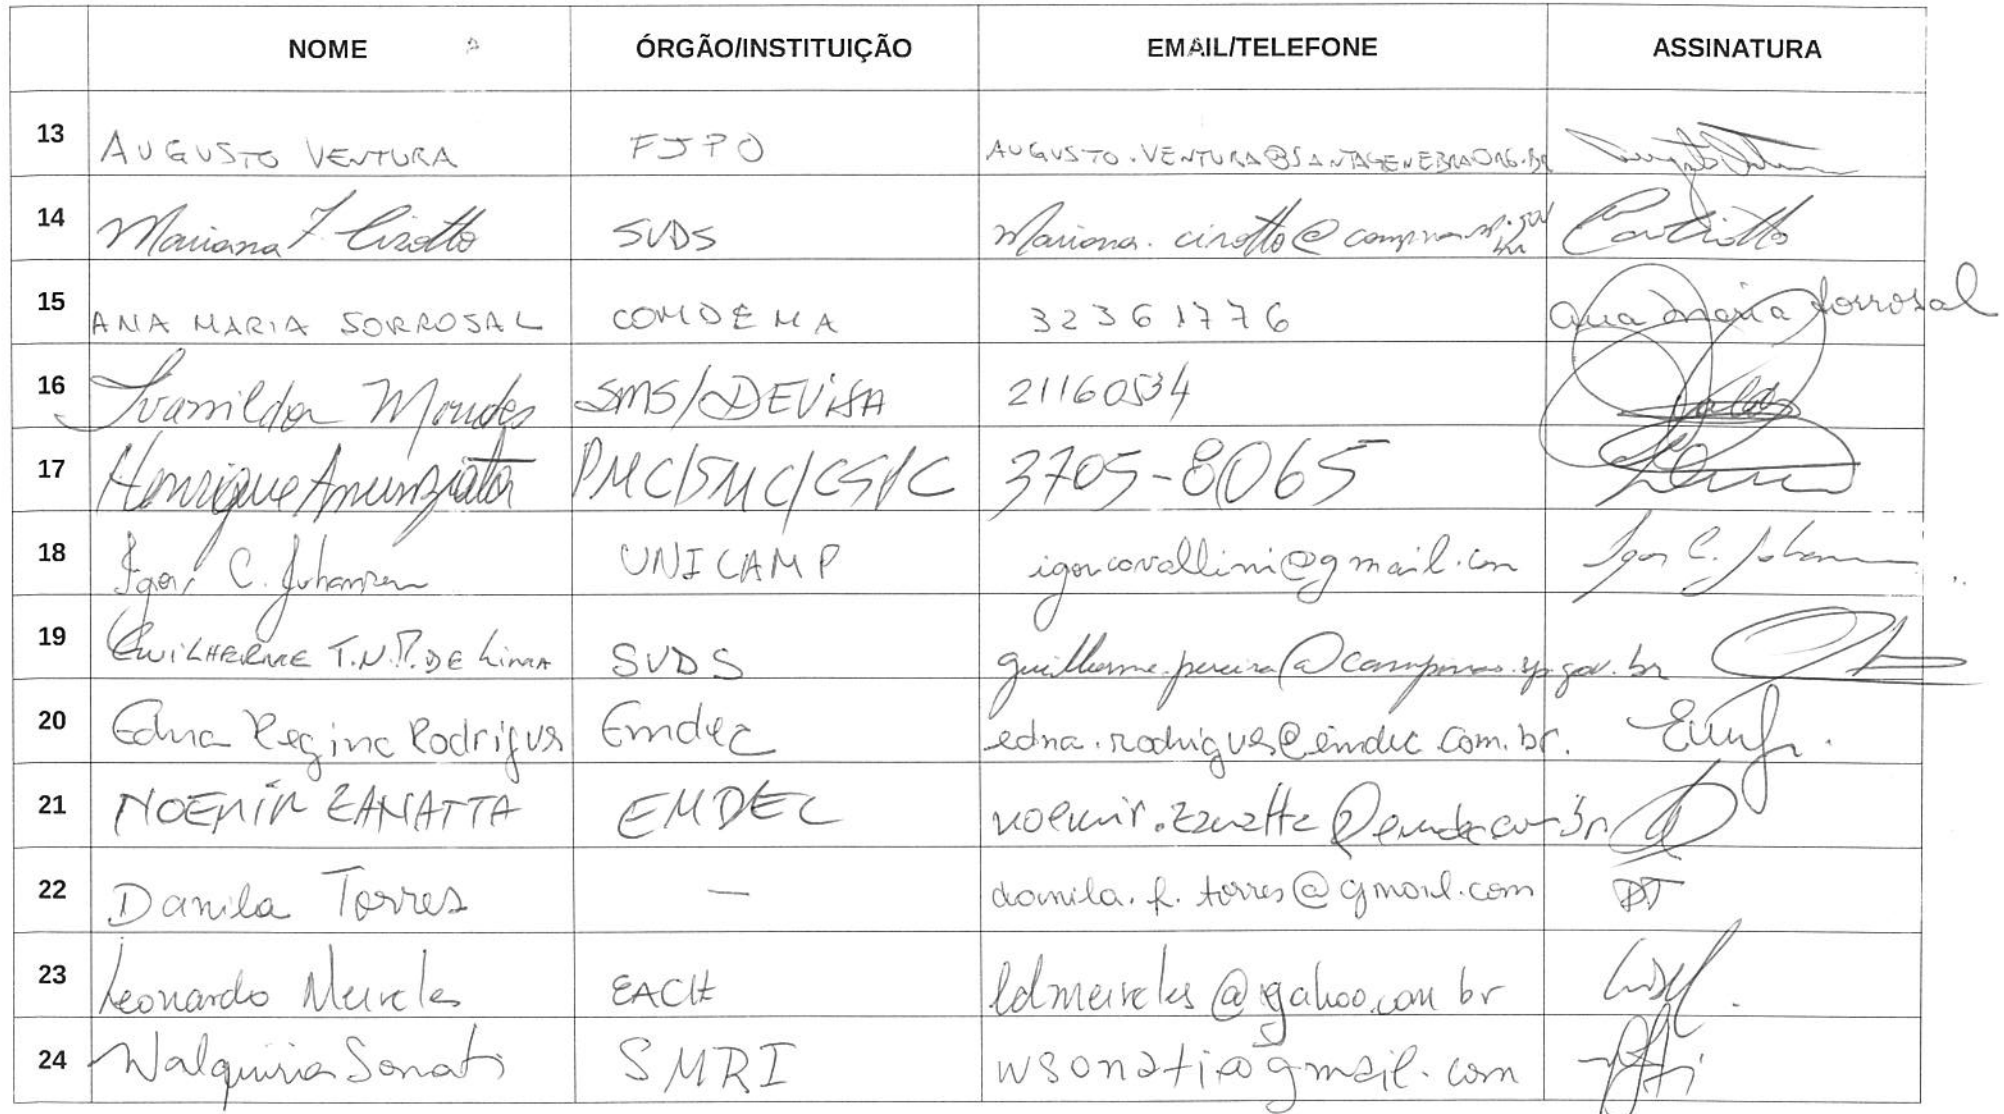 NOME ÓRGÃO/INSTITUIÇÃO EMAIL/TELEFONE ASSINATURA
13 AUGUSTO VENTURA FJPO AUGUSTO.VENTURA@SANTAGENEBRA.ORG.BR
14 Mariana F. Cirotto SVDS mariana.cirotto@campinas.sp.gov.br
15 ANA MARIA SORROSAL COMDEMA 32361776 Ana Maria Sorrosal
16 Ivanilda Mendes SMS/DEVISA 21160534
17 Henrique Anunziata PMC/SMC/CSPC 3705-8065
18 Igor C. Johansen UNICAMP igorcavallini@gmail.com Igor C. Johansen
19 GUILHERME T.N.P. DE LIMA SVDS guilherme.pereira@campinas.sp.gov.br
20 Edna Regina Rodrigues Emdec edna.rodrigues@emdec.com.br.
21 NOEMIR ZANATTA EMDEC noemir.zanatta@emdec.com.br
22 Danila Torres — danila.f.torres@gmail.com DT
23 Leonardo Meireles EACH ldmeireles@yahoo.com br
24 Walquiria Sonati SMRI wsonati@gmail.com